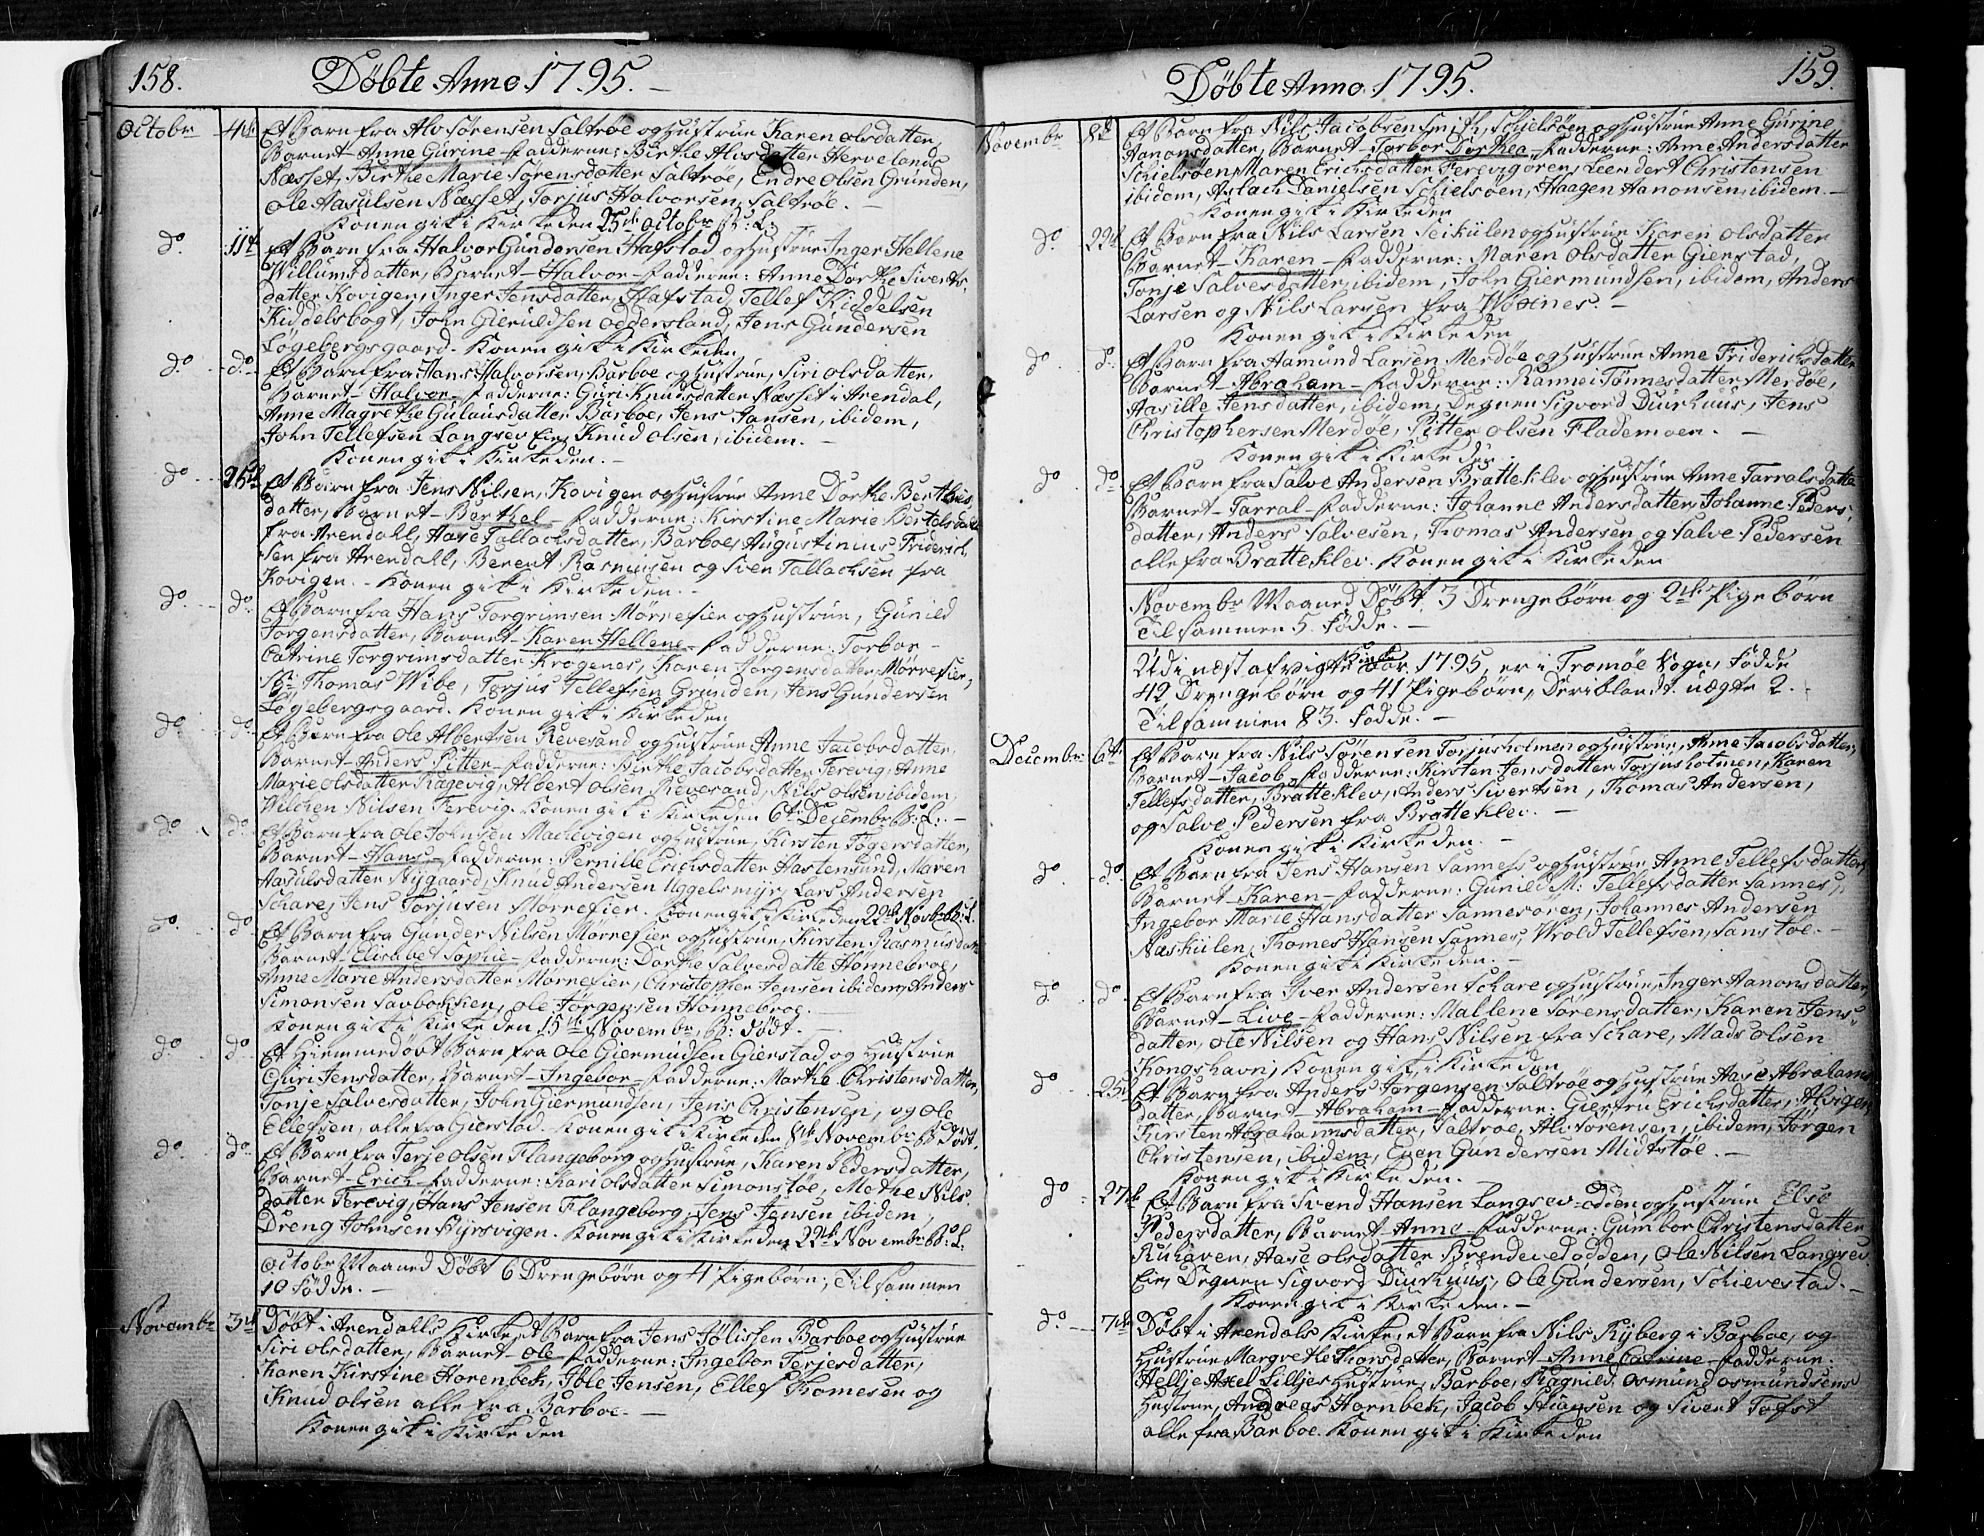 158.
Døbte Anno 1795. –
Octobr 4de Et Barn fra Alv Sørensen Saltrøe og Hustrue Karen Olsdatter,
Barnet – Anne Gurine – Fadderne: Birthe Alvsdatter Hervelands
Næsset, Birthe Marie Sørensdatter Saltrøe, Endre Olsen Grunden,
Ole Aasulsen Næsset, Torjus Halvorsen, Saltrøe. –
Konen gik i Kirke den 25de Octobr B: L:
do. 11te Et Barn fra Halvor Gundersen Hafstad og Hustrue Inger Hellene
Willumsdatter, Barnet – Halvor – Fadderne: Anne Dorthe Siverts-
datter Kovigen, Inger Jensdatter, Hafstad, Tellef Kiddelsen
Kiddelsbogt, John Gieruldsen Oddersland, Jens Gundersen
Løgebergsgaard. Konen gik i Kirke den
do. do. Et Barn fra Hans Halvorsen, Barboe og Hustrue, Siri Olsdatter,
Barnet – Halvor – Fadderne: Guri Knudsdatter Næsset i Arendal,
Anne Magrethe Gulausdatter Barboe, Jens Jansen, ibidem,
John Tellefsen Langsev Eie, Knud Olsen, ibidem. –
Konen gik i Kirke den. –
do 25de Et Barn fra Jens Nilsen, Kovigen og Hustrue Anne Dorthe Berthels
datter, Barnet – Berthel – Fadderne: Kirstine Marie Bertelsdatter
fra Arendall, Aase Tallachsdatter, Barboe, Augustinius Friderich
sen fra Arendall, Berent Rasmusen og Sven Tallachsen fra
Kovigen. – Konen gik i Kirke den. –
do do. Et Barn fra Hans Torgrimsen Mørrefier og Hustrue, Gunild
Jørgensdatter, Barnet – Karen Hellene – Fadderne: Torbor –
Catrine Torgrimsdatter Krøgenæs, Karen Jørgensdatter, Mørrefier,
Sr: Thomas Wibe, Torjus Tellefsen Grunden, Jens Gundersen
Løgebergsgaard. Konen gik i Kirke den
do do. Et Barn fra Ole Albertsen Revesand og Hustrue Anne Jacobsdatter,
Barnet – Anders Pitter – Fadderne: Birthe Jacobsdatter Ferevig, Anne
Marie Olsdatter Ragevig, Albert Olsen, Revesand, Nils Olsen ibidem,
Wilchen Nilsen Ferevig. Konen gik i Kirke den 6te Decembr B: L: –
do. do. Et Barn fra Ole Johnsen Madevigen og Hustrue, Kirsten Tøgersdatter,
Barnet – Hans – Fadderne: Pernille Erichsdatter Hastensund, Maren
Aasulsdatter Nygaard, Knud Andersen Uggelsmyr, Lars Andersen
Schare, Jens Torjusen Mørrefier. Konen gik i Kirke den 22de Novbr. B: L.
do. do. Et Barn fra Gunder Nilsen Mørrefier og Hustrue, Kirsten Rasmusdatt
Barnet – Elisabet Sophie – Fadderne: Dorthe Salvesdatte Hønnebroe,
Anne Marie Andersdatter Mørrefier, Christopher Jensen ibidem, Anders
Simonsen Savbækken, Ole Jørgensen Hønnebroe.
Konen gik i Kirke den 15de Novembr, B: Født. –
do do. Et Hiemmedøbt Barn fra Ole Giermudsen Gierstad og Hustrue
Guri Jensdatter, Barnet – Ingebor – Fadderne: Marthe Christensdatter,
Tonje Salvesdatter, John Giermundsen, Jens Christensen, og Ole
Ellefsen, alle fra Gierstad. Konen gik i Kirke den 8de Novembr B: Født.
do. do. Et Barn fra Terje Olsen Flangeborg og Hustrue, Karen Pedersdatter,
Barnet – Erich – Fadderne: Kari Olsdatter Simonstøe, Methe Nils-
datter Ferevig, Hans Jensen Flangeborg, Jens Jensen ibidem,
Dreng Johnsen Kirsvigen. Konen gik i Kirke den 22de Novembr B: L:
Octobr Maaned Døbt 6 Drengebørn og 4 Pigebørn, Tilsammen
10 Fødde. –
Novembr 3de Døbt i Arendalls Kirke et Barn fra Jens Jølissen Barboe og Hustrue
Siri Olsdatter, Barnet – Ole – Fadderne: Ingebor Terjesdatter,
Karen Kirstine Horenbek, Ible Jensen, Ellef Thomesen og
Knud Olsen alle fra Barboe. –
Konen gik i Kirke den
159.
Døbte Anno 1795.
Novembr 8de Et Barn fra Nils Jacobsen Smith, Schielsøen og Hustrue Anne Gurine
Aanonsdatter, Barnet – Torbor Dorthea – Fadderne: Anne Andersdatter
Schielsøen, Maren Erichsdatter Ferevigøren, Leendert Christensen
ibidem, Aslach Danielsen Schielsøen, Haagen Aanonsen, ibidem. –
Konen gik i Kirke den
do. 22de Et Barn fra Nils Larsen Seikulen og Hustrue Karen Olsdatter
Barnet – Karen – Fadderne: Maren Olsdatter Gierstad,
Tonje Salvesdatter, ibidem, John Giermundsen, ibidem, Anders
Larsen og Nils Larsen fra Woxnes. –
Konen gik i Kirke den
do. do. Et Barn fra Aamund Larsen Merdøe og Hustrue Anne Friderichsdatter
Barnet – Abraham – Fadderne: Rannei Tønnesdatter, Merdøe,
Aasille Jensdatter, ibidem, Degnen Sigvord Duurhuus, Jens
Christophersen Merdøe, Pitter Olsen Flademoen. –
Konen gik i Kirke den
do. do. Et Barn fra Salve Andersen Bratteklev og Hustrue Anne Tarralsdatte
Barnet – Tarral – Fadderne: Johanne Andersdatter, Johanne Peders
datter, Anders Salvesen, Thomas Andersen og Salve Pedersen
alle fra Bratteklev. Konen gik i Kirke den
Novembr Maaned Døbt 3 Drengebørn og 2de Pigebørn
Tilsammen 5. Fødde. –
Udi næst afvigte Kirke Aar 1795, er i Tromøe Sogn, Fødde
42 Drengebørn og 41 Pigebørn, Deriblandt uægte 2. –
Tilsammen 83. Fødde. –
Decembr 6te Et Barn fra Nils Sørensen Torjusholmen og Hustrue, Anne Jacobsdatter,
Barnet – Jacob – Fadderne: Kirsten Jensdatter Torjusholmen, Karen
Tellefsdatter, Bratteklev, Anders Sivertsen, Thomas Andersen,
og Salve Pedersen fra Bratteklev. –
Konen gik i Kirke den. –
do do. Et Barn fra Jens Hansen Sannes og Hustrue Anne Tellefsdatter
Barnet – Karen – Fadderne: Gunild M: Tellefsdatter Sannes,
Ingebor Marie Hansdatter Sannesøren, Johannes Andersen
Næskiilen, Thomes Hansen Sannes, Wrold Tellefsen, Sanstøe. –
Konen gik i Kirke den. –
do do. Et Barn fra Iver Andersen Schare og Hustrue, Inger Aanonsdatter,
Barnet – Live – Fadderne: Mallene Sørensdatter, Karen Jens-
datter, Ole Nilsen og Hans Nilsen fra Schare, Mads Olsen
Kongshavn, Konen gik i Kirke den
do 25de Et Barn fra Anders Jørgensen Saltrøe og Hustrue Aase Abrahams
datter, Barnet – Abraham – Fadderne: Giertru Erichsdatter, Alvigen,
Kirsten Abrahamsdatter, Saltrøe, Alv Sørensen, ibidem, Jørgen
Christensen, ibidem, Even Gundersen Midtstøe. –
Konen gik i Kirke den. –
do 27de Et Barn fra Svend Hansen Langsev-Odden og Hustrue Else
Pedersdatter, Barnet – Anne – Fadderne: Gumbor Christensdatter
Ruhaven, Aase Olsdatter Brendevedodden, Ole Nilsen Langsev
Eie, Degnen Sigvorg Duurhuus, Ole Gundersen, Schievestad. –
Konen gik i Kirke den. –
do 7de Døbt i Arendals Kirke et Barn fra Nils Ryberg i Barboe, og
Hustrue Margrethe Thorsdatter, Barnet – Anne Catrine – Fadderne:
Hellje Axel Lilljes Hustrue, Barboe, Ragnild Osmund Osmundsens
Hustrue, Andreas Hornbek, Jacob Stiansen og Sivert Tofst
alle fra Barboe. Konen gik i Kirke den